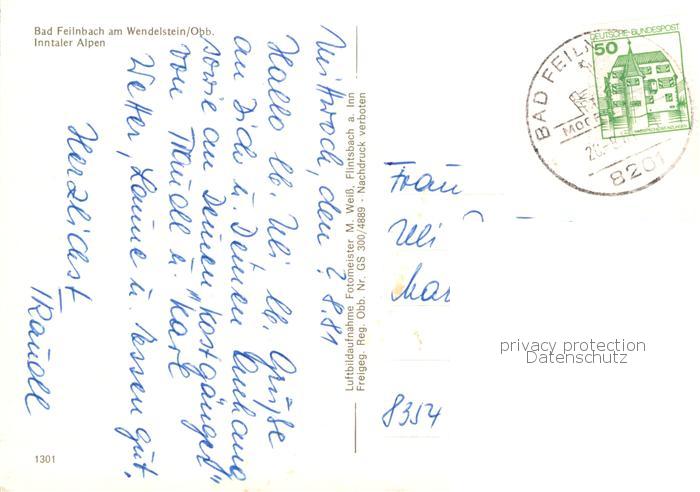 Bad Feilnbach am Wendelstein/Obb.
Inntaler Alpen
Mittwoch, den ? 8.81
Hallo lb. Uli lb. Grüße
an Dich u. Deinen Anhang
sowie an Deinen "Kostgänger"
von Traudl u. Karl
Wetter, Laune u. Essen gut.
Herzlichst
Traudl
1301
Luftbildaufnahme Fotomeister M. Weiß, Flintsbach a. Inn
Freigeg. Reg. Obb. Nr. GS 300/4889 - Nachdruck verboten
DEUTSCHE BUNDESPOST
50
BAD FEILN
MOOR
8201
Frau
Uli
Mar
8354
privacy protection
Datenschutz